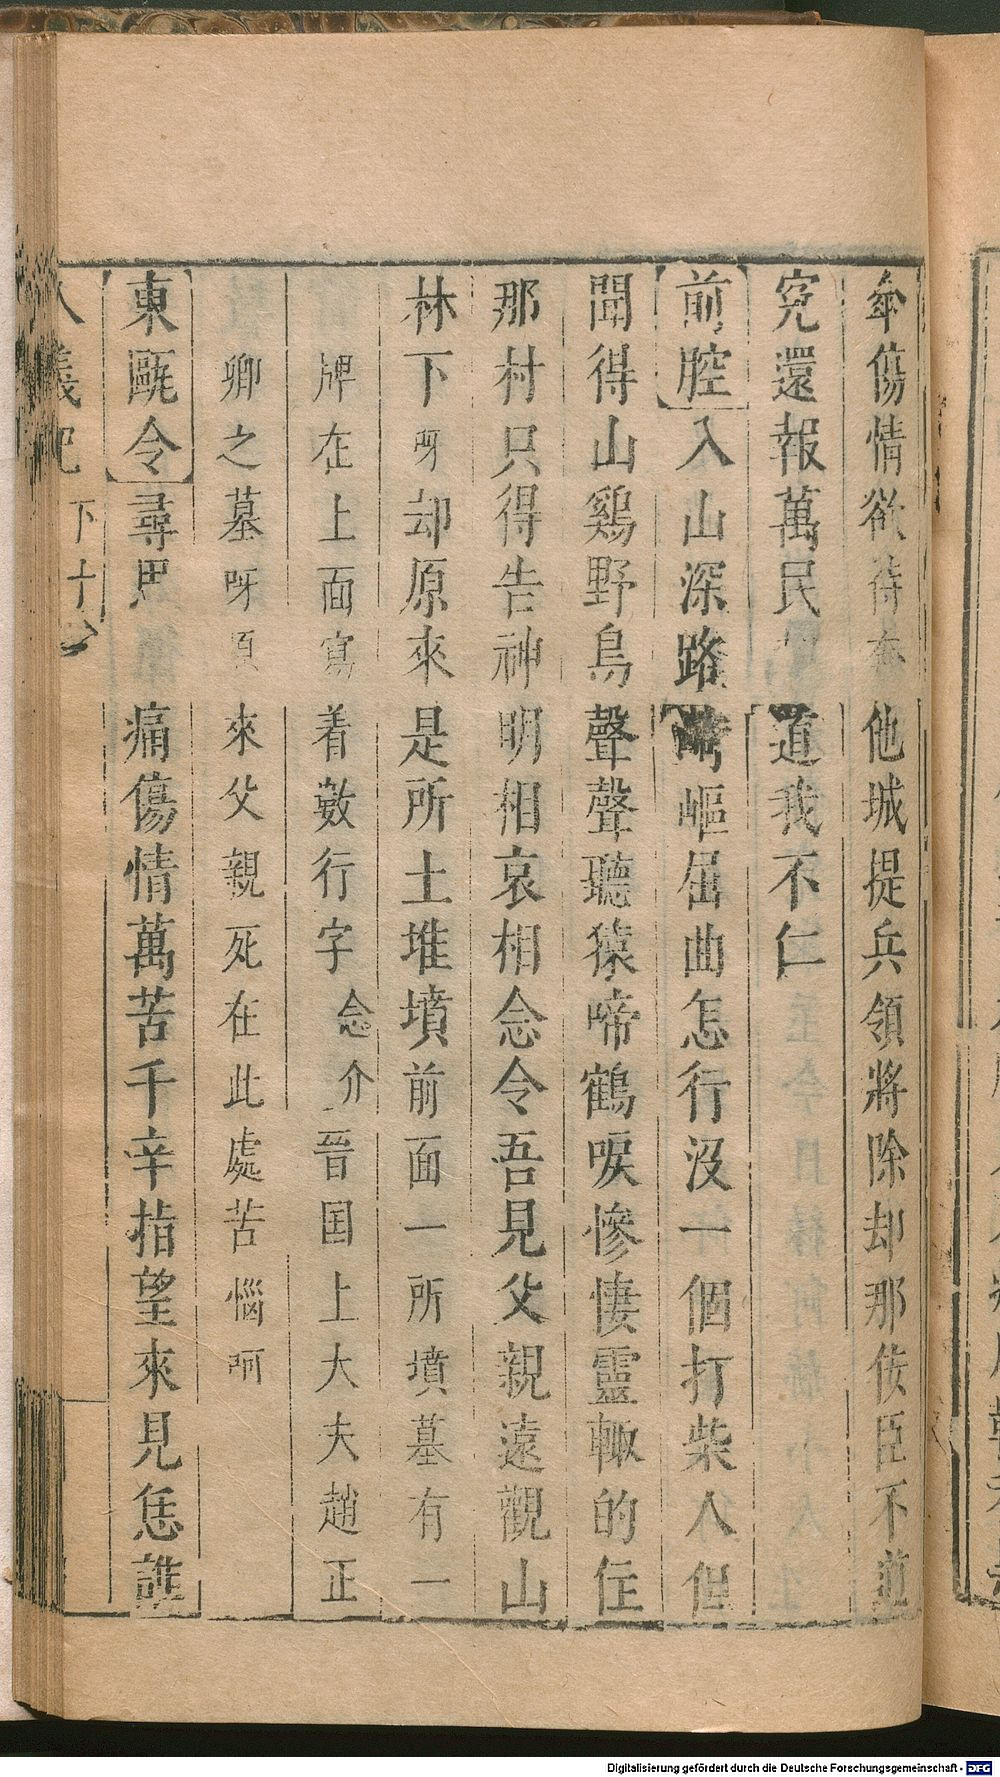 傷情欲待奔他城提兵領將除却那佞臣不道
究還報萬民道我不仁
前腔入山深路崎嶇屈曲怎行沒一個打柴人但
聞得山鷄野鳥聲聲聽猿啼鶴唳慘悽靈輙的在
那村只得告神明相哀相念令吾見父親遠觀山
林下呀却原來是所土堆墳前面一所墳墓有一
牌在上面寫着數行字念介晋国上大夫趙正
卿之墓呀原來父親死在此處苦惱呵
東甌令尋思痛傷情萬苦千辛指望來見恁誰
八義記
下
Digitalisierung gefördert durch die Deutsche Forschungsgemeinschaft - DFG